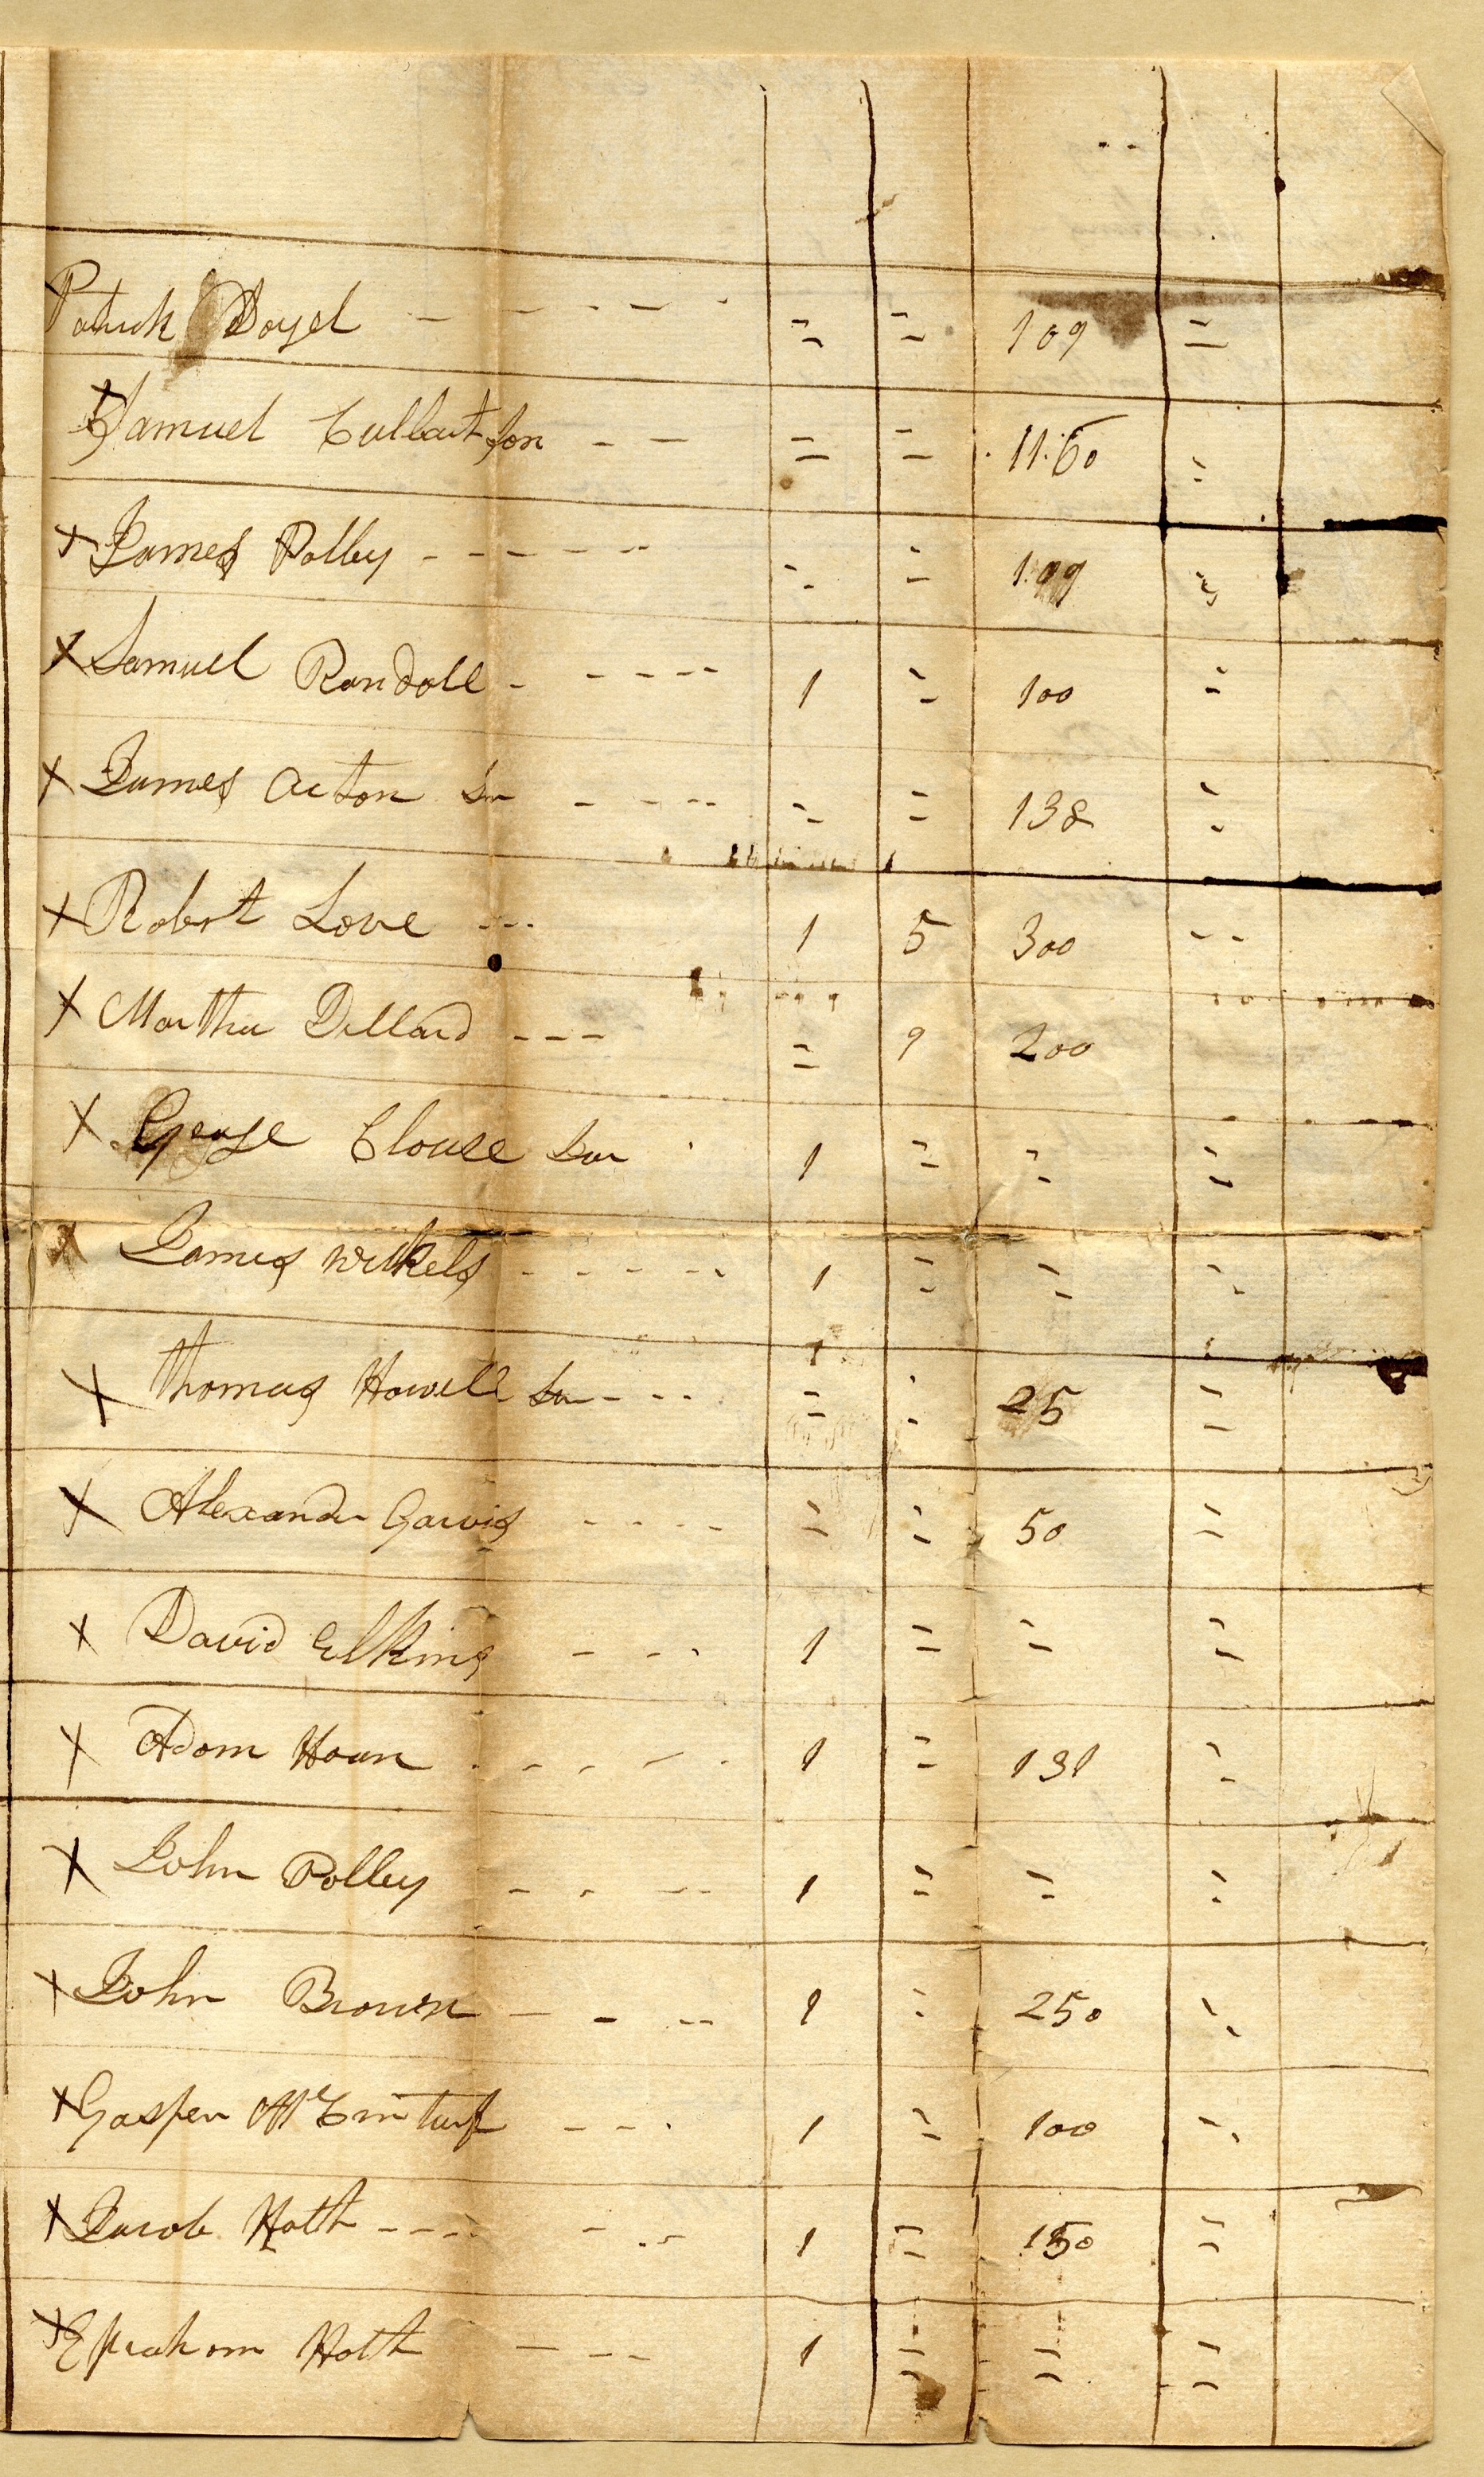 Patrick Boyd - - - - - - = = 109 =
X Samuel Cullbartson - - = = 11.60 =
X James Polley - - - - - = = 109 =
X Samuel Randall - - - - - 1 = 100 =
X James Acton Sr - - - - = = 138 =
X Robert Love - - - 1 5 300 - -
X Martha Dillard - - - = 9 200
X George Clouse Snr 1 = = =
X James - - - - - 1 = = =
X Thomas Howell Snr - - - = = 25 =
X Alexandr Garvis - - - - = = 50 =
X David Elkins - - - 1 = = =
X Adam Haun - - - - - - 1 = 131 =
X John Polley - - - - 1 = = =
X John Brown - - - - 1 = 250 =
X Gasper McEinturf - - - 1 = 100 =
X Jacob Hatth - - - - - - - 1 = 150 =
X Epraham Hatth - - - 1 = = =